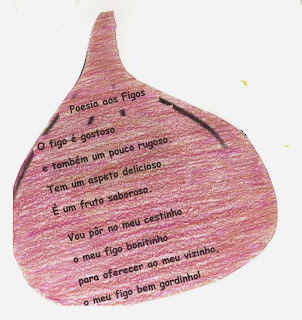 Poesia aos Figos
O figo é gostoso
e também um pouco rugoso.
Tem um aspeto delicioso.
É um fruto saboroso.
Vou pôr no meu cestinho
o meu figo bonitinho
para oferecer ao meu vizinho,
o meu figo bem gordinho!